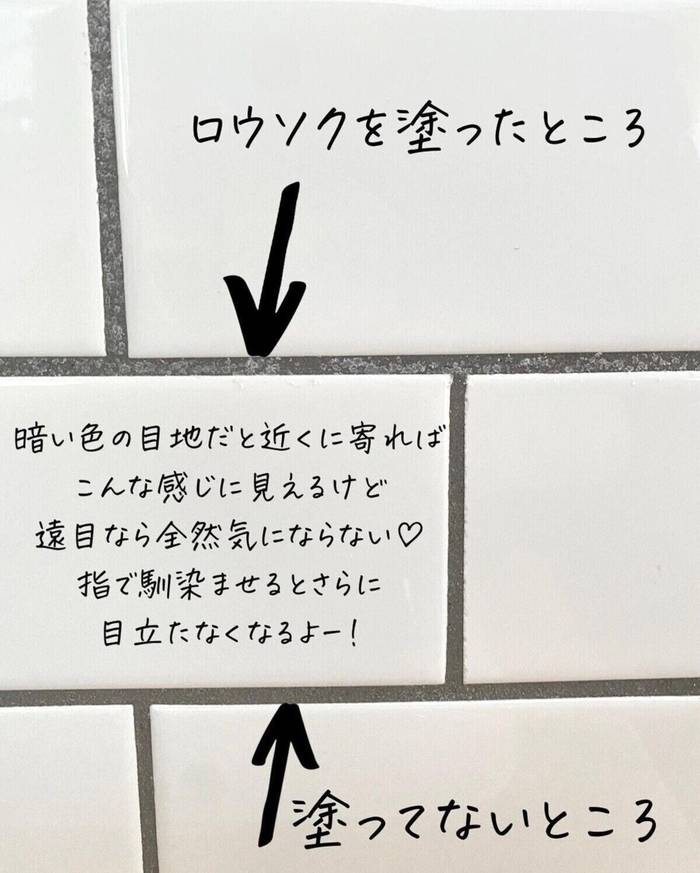 ロウソクを塗ったところ
暗い色の目地だと近くに寄れば
こんな感じに見えるけど
遠目なら全然気にならない♡
指で馴染ませるとさらに
目立たなくなるよー！
塗ってないところ